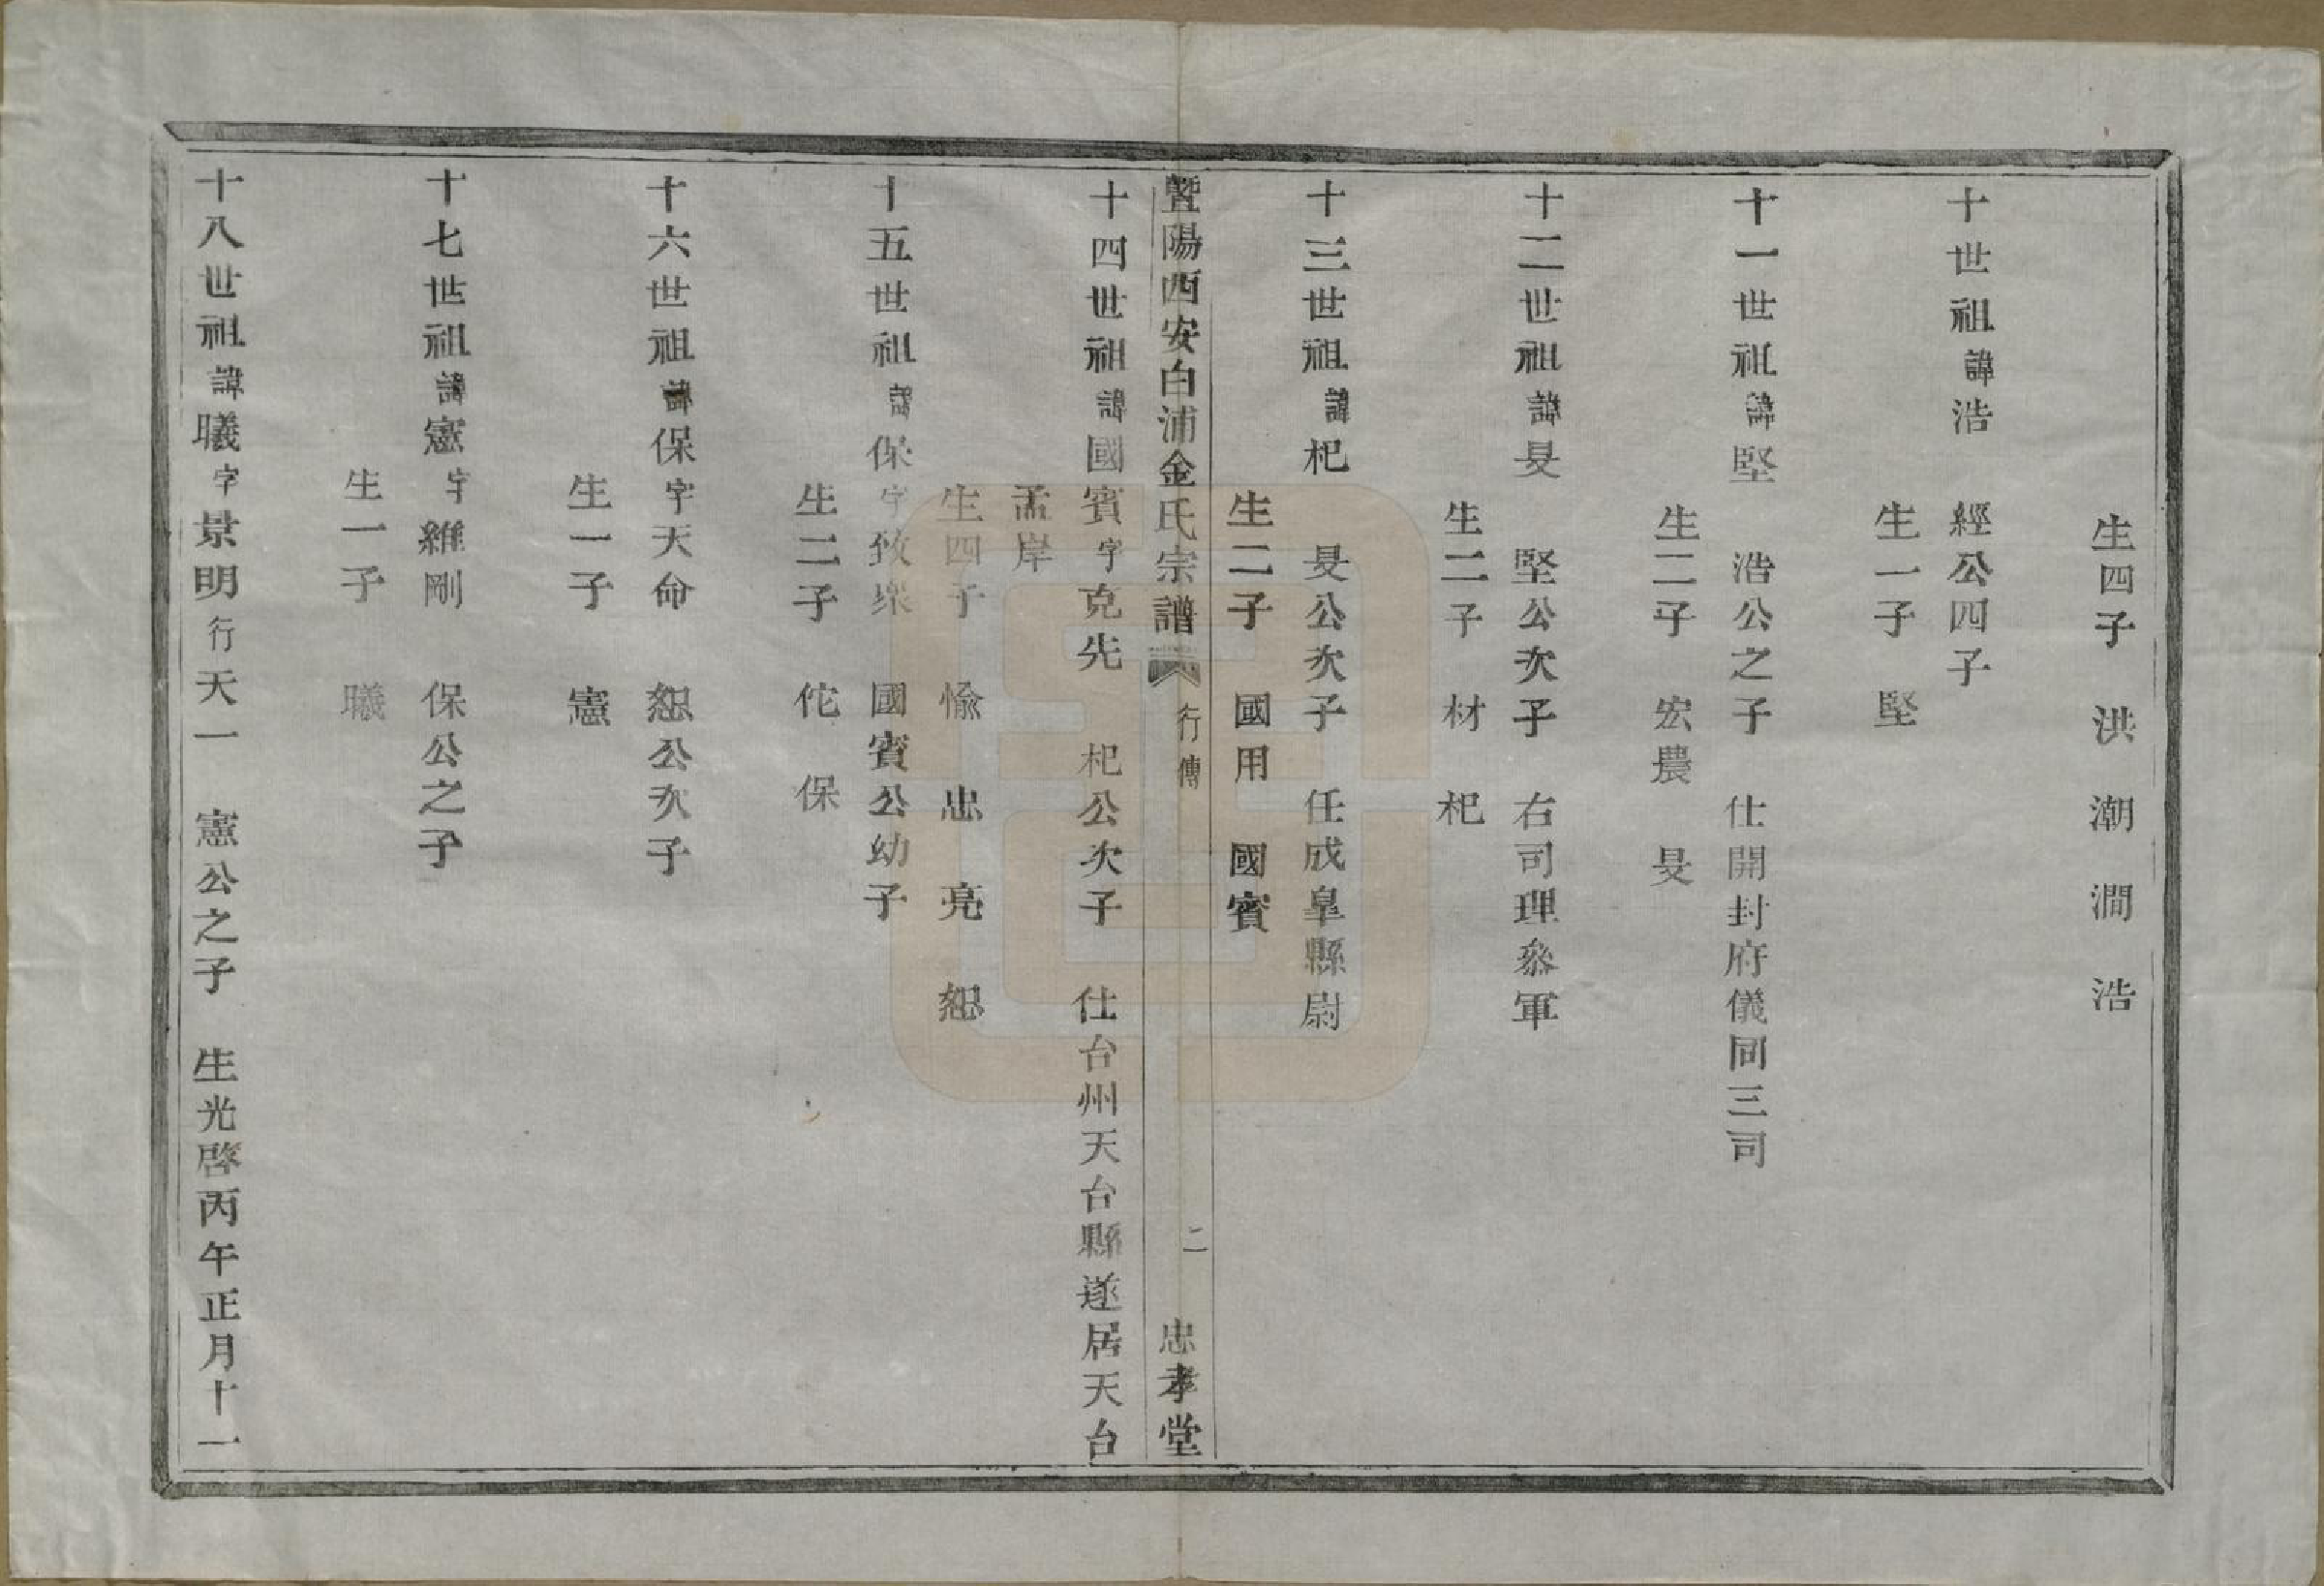 生四子　洪　潮　澗　浩
十世祖諱浩　經公四子
生一子　堅
十一世祖諱堅　浩公之子　仕開封府儀同三司
生二子　宏農　旻
十二世祖諱旻　堅公次子　右司理叅軍
生二子　材　杞
十三世祖諱杞　旻公次子　任成臯縣尉
生二子　國用　國賓
暨陽西安白浦金氏宗譜　行傳　二　忠孝堂
十四世祖諱國賓字克先　杞公次子　仕台州天台縣遂居天台
孟岸
生四子　愉　忠　亮　恕
十五世祖諱保字致衆　國賓公幼子
生二子　佗　保
十六世祖諱保字天命　恕公次子
生一子　憲
十七世祖諱憲字維剛　保公之子
生一子　曦
十八世祖諱曦字景明行天一　憲公之子　生光啓丙午正月十一